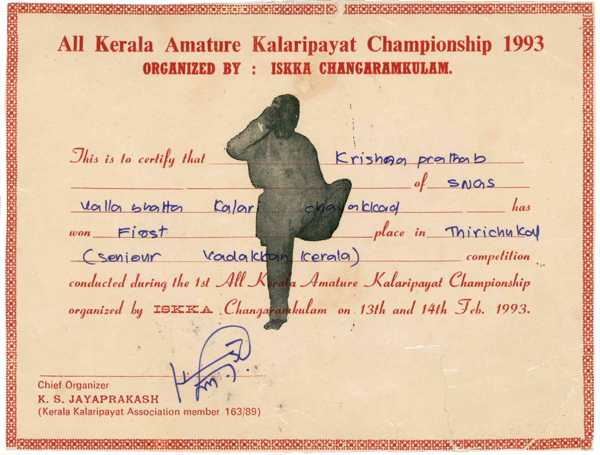 All Kerala Amature Kalaripayat Championship 1993
ORGANIZED BY : ISKKA CHANGARAMKULAM.
This is to certify that Krishna prathab
of SNAS
Valla bhatta Kalari chavakkad has
won First place in Thirichukal
(Seniour Vadakkan Kerala) competition
conducted during the 1st All Kerala Amature Kalaripayat Championship
organized by ISKKA Changaramkulam on 13th and 14th Feb. 1993.
Chief Organizer
K. S. JAYAPRAKASH
(Kerala Kalaripayat Association member 163/89)